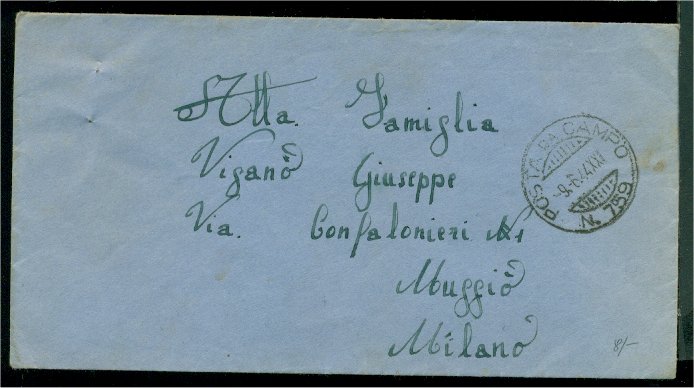 Alla. Famiglia
Viganò Giuseppe
Via. Confalonieri N1
Muggiò
Milano
POSTA DA CAMPO
-9-6-
N. 759
8/-